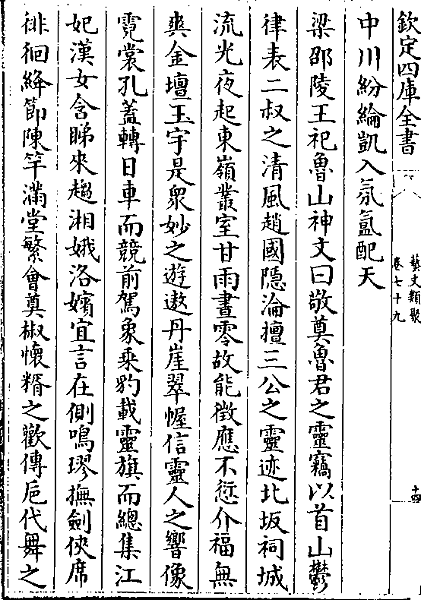 欽定四庫全書
藝文類聚
卷七十九
十四
中川紛綸凱入氛氳配天
梁邵陵王祀魯山神文曰敬奠魯君之靈竊以首山鬱
律表二叔之清風趙國隱淪擅三公之靈迹北坂祠城
流光夜起東嶺叢室甘雨晝零故能徵應不愆介福無
爽金壇玉宇是衆妙之遊遨丹崖翠幄信靈人之響像
霓裳孔蓋轉日車而競前駕象乘豹載靈旗而總集江
妃漢女含睇來趨湘娥洛嬪宜言在側鳴璆撫劍俠席
徘徊絳節陳竽滿堂繁會奠椒懷糈之歡傳巵代舞之